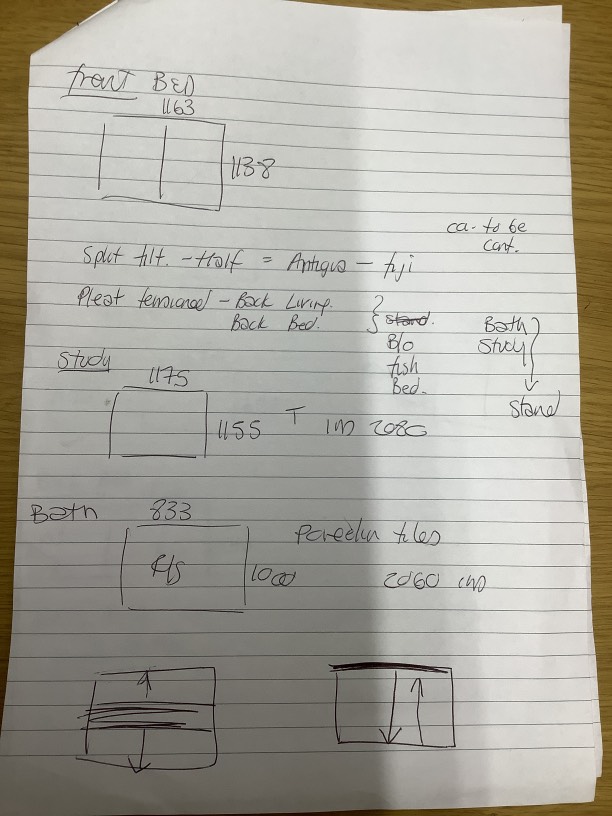 front BED
1163
1138
ca. to be
cont.
Split tilt. - Half = Antigua - fiji
Pleat tensioned - Back Living.
Back Bed.
stand.
B/o
fish
Bed.
Bath
Study
Stand
Study
1175
1155 T 2080
Bath 833
F/S
1000
tiles
2060